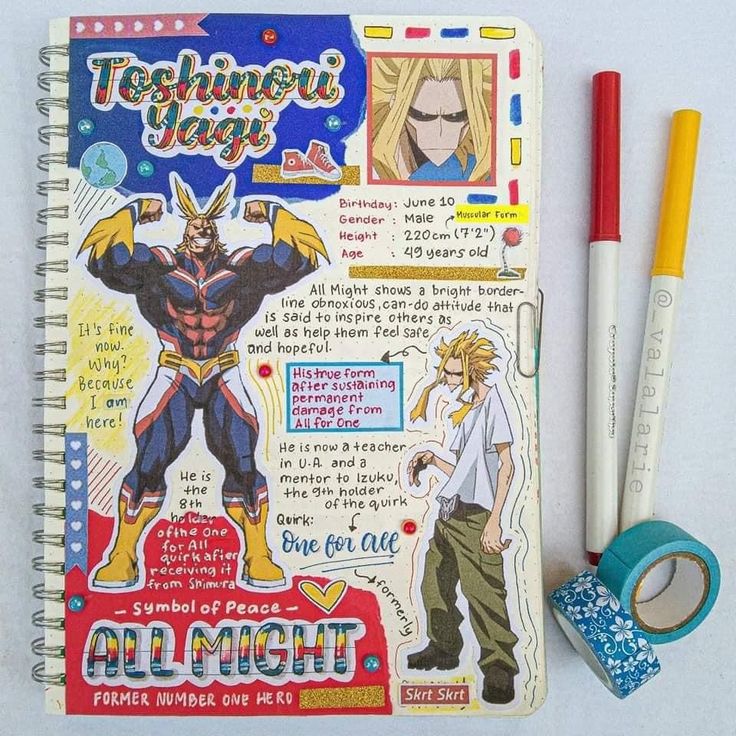 Toshinori
Yagi
Birthday: June 10
Gender : Male
Muscular Form
Height : 220cm (7'2")
Age : 49 years old
All Might shows a bright border-
line obnoxious, can-do attitude that
is said to inspire others as
well as help them feel safe
and hopeful.
It's fine
now.
Why?
Because
I am
here!
His true form
after sustaining
permanent
damage from
All for One
He is now a teacher
in U.A. and a
mentor to Izuku,
the 9th holder
of the quirk
He is
the
8th
holder
of the One
for All
quirk after
receiving it
from Shimura
Quirk:
One for all
formerly
- Symbol of Peace -
ALL MIGHT
FORMER NUMBER ONE HERO
Skrt Skrt
@_valalarie